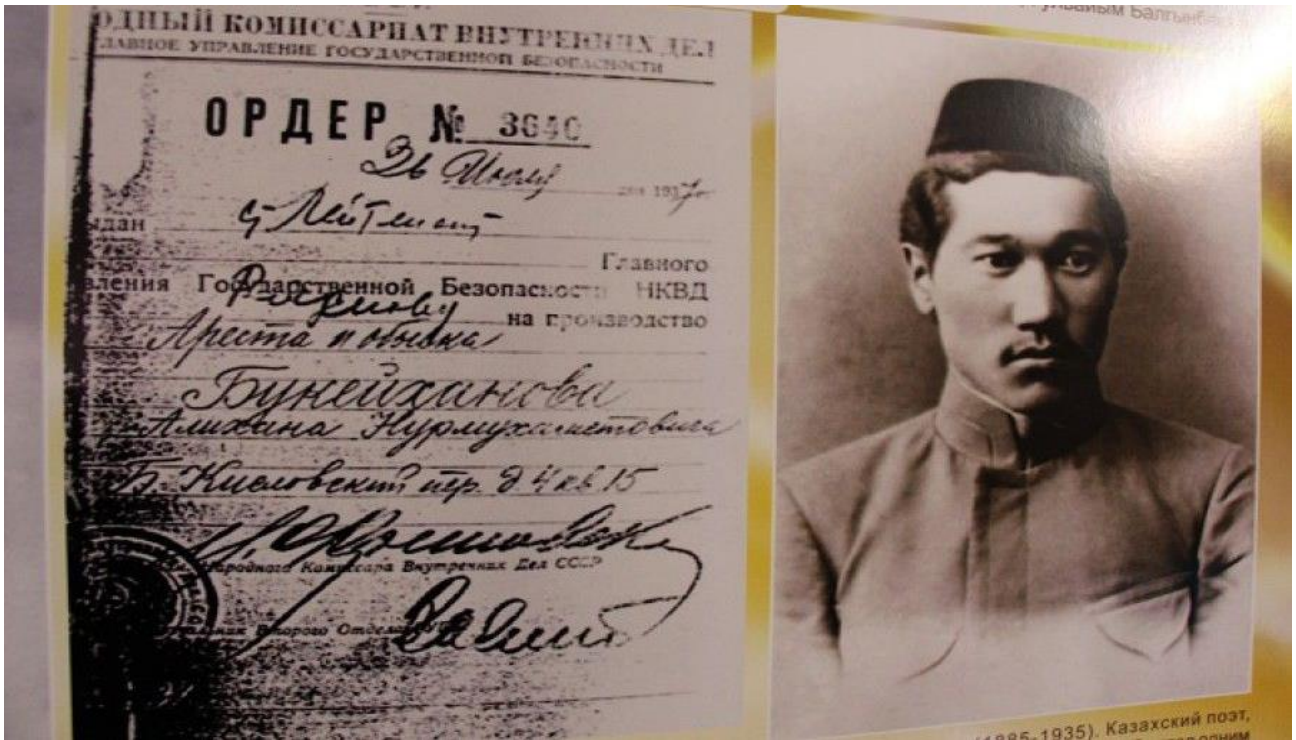 ОДНЫЙ КОМИССАРИАТ ВНУТРЕННИХ ДЕЛ
ГЛАВНОЕ УПРАВЛЕНИЕ ГОСУДАРСТВЕННОЙ БЕЗОПАСНОСТИ
ОРДЕР № 3640
26 Июля дня 1937 г.
ыдан ст Лейтенант
Главного
вления Государственной Безопасности НКВД
на производство
Ареста и обыска
Букейханова
Алихана Нурмухаметовича
Б. Кисловский пер. д 4 кв. 15
Народного Комиссара Внутренних Дел СССР
Второго
Балгынбе
(1885-1935). Казахский поэт,
одним